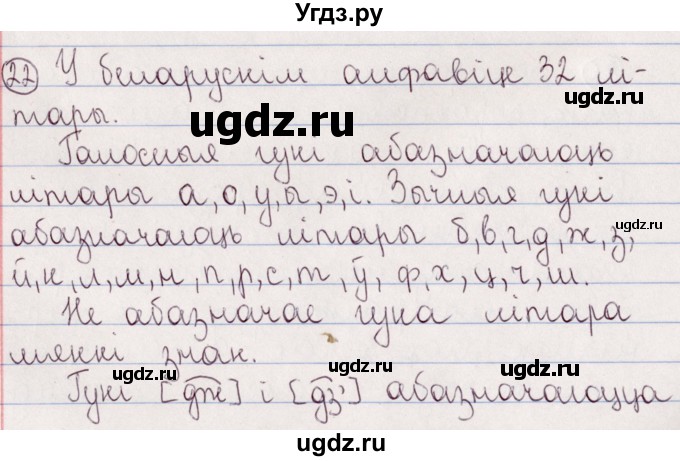 Угдз.ру
22 У беларускім алфавіце 32 лі-
тары.
ugdz.ru
ugdz.ru
Галосныя гукі абазначаюць
літары а, о, у, ы, э, і. Зычныя гукі
ugdz.ru
абазначаюць літары б, в, г, д, ж, з,
й, к, л, м, н, п, р, с, т, ў, ф, х, ц, ч, ш.
Не абазначае гука літара
мяккі знак.
ugdz.ru
ugdz.ru
Гукі [дж] і [дз'] абазначаюцца
ugdz.ru